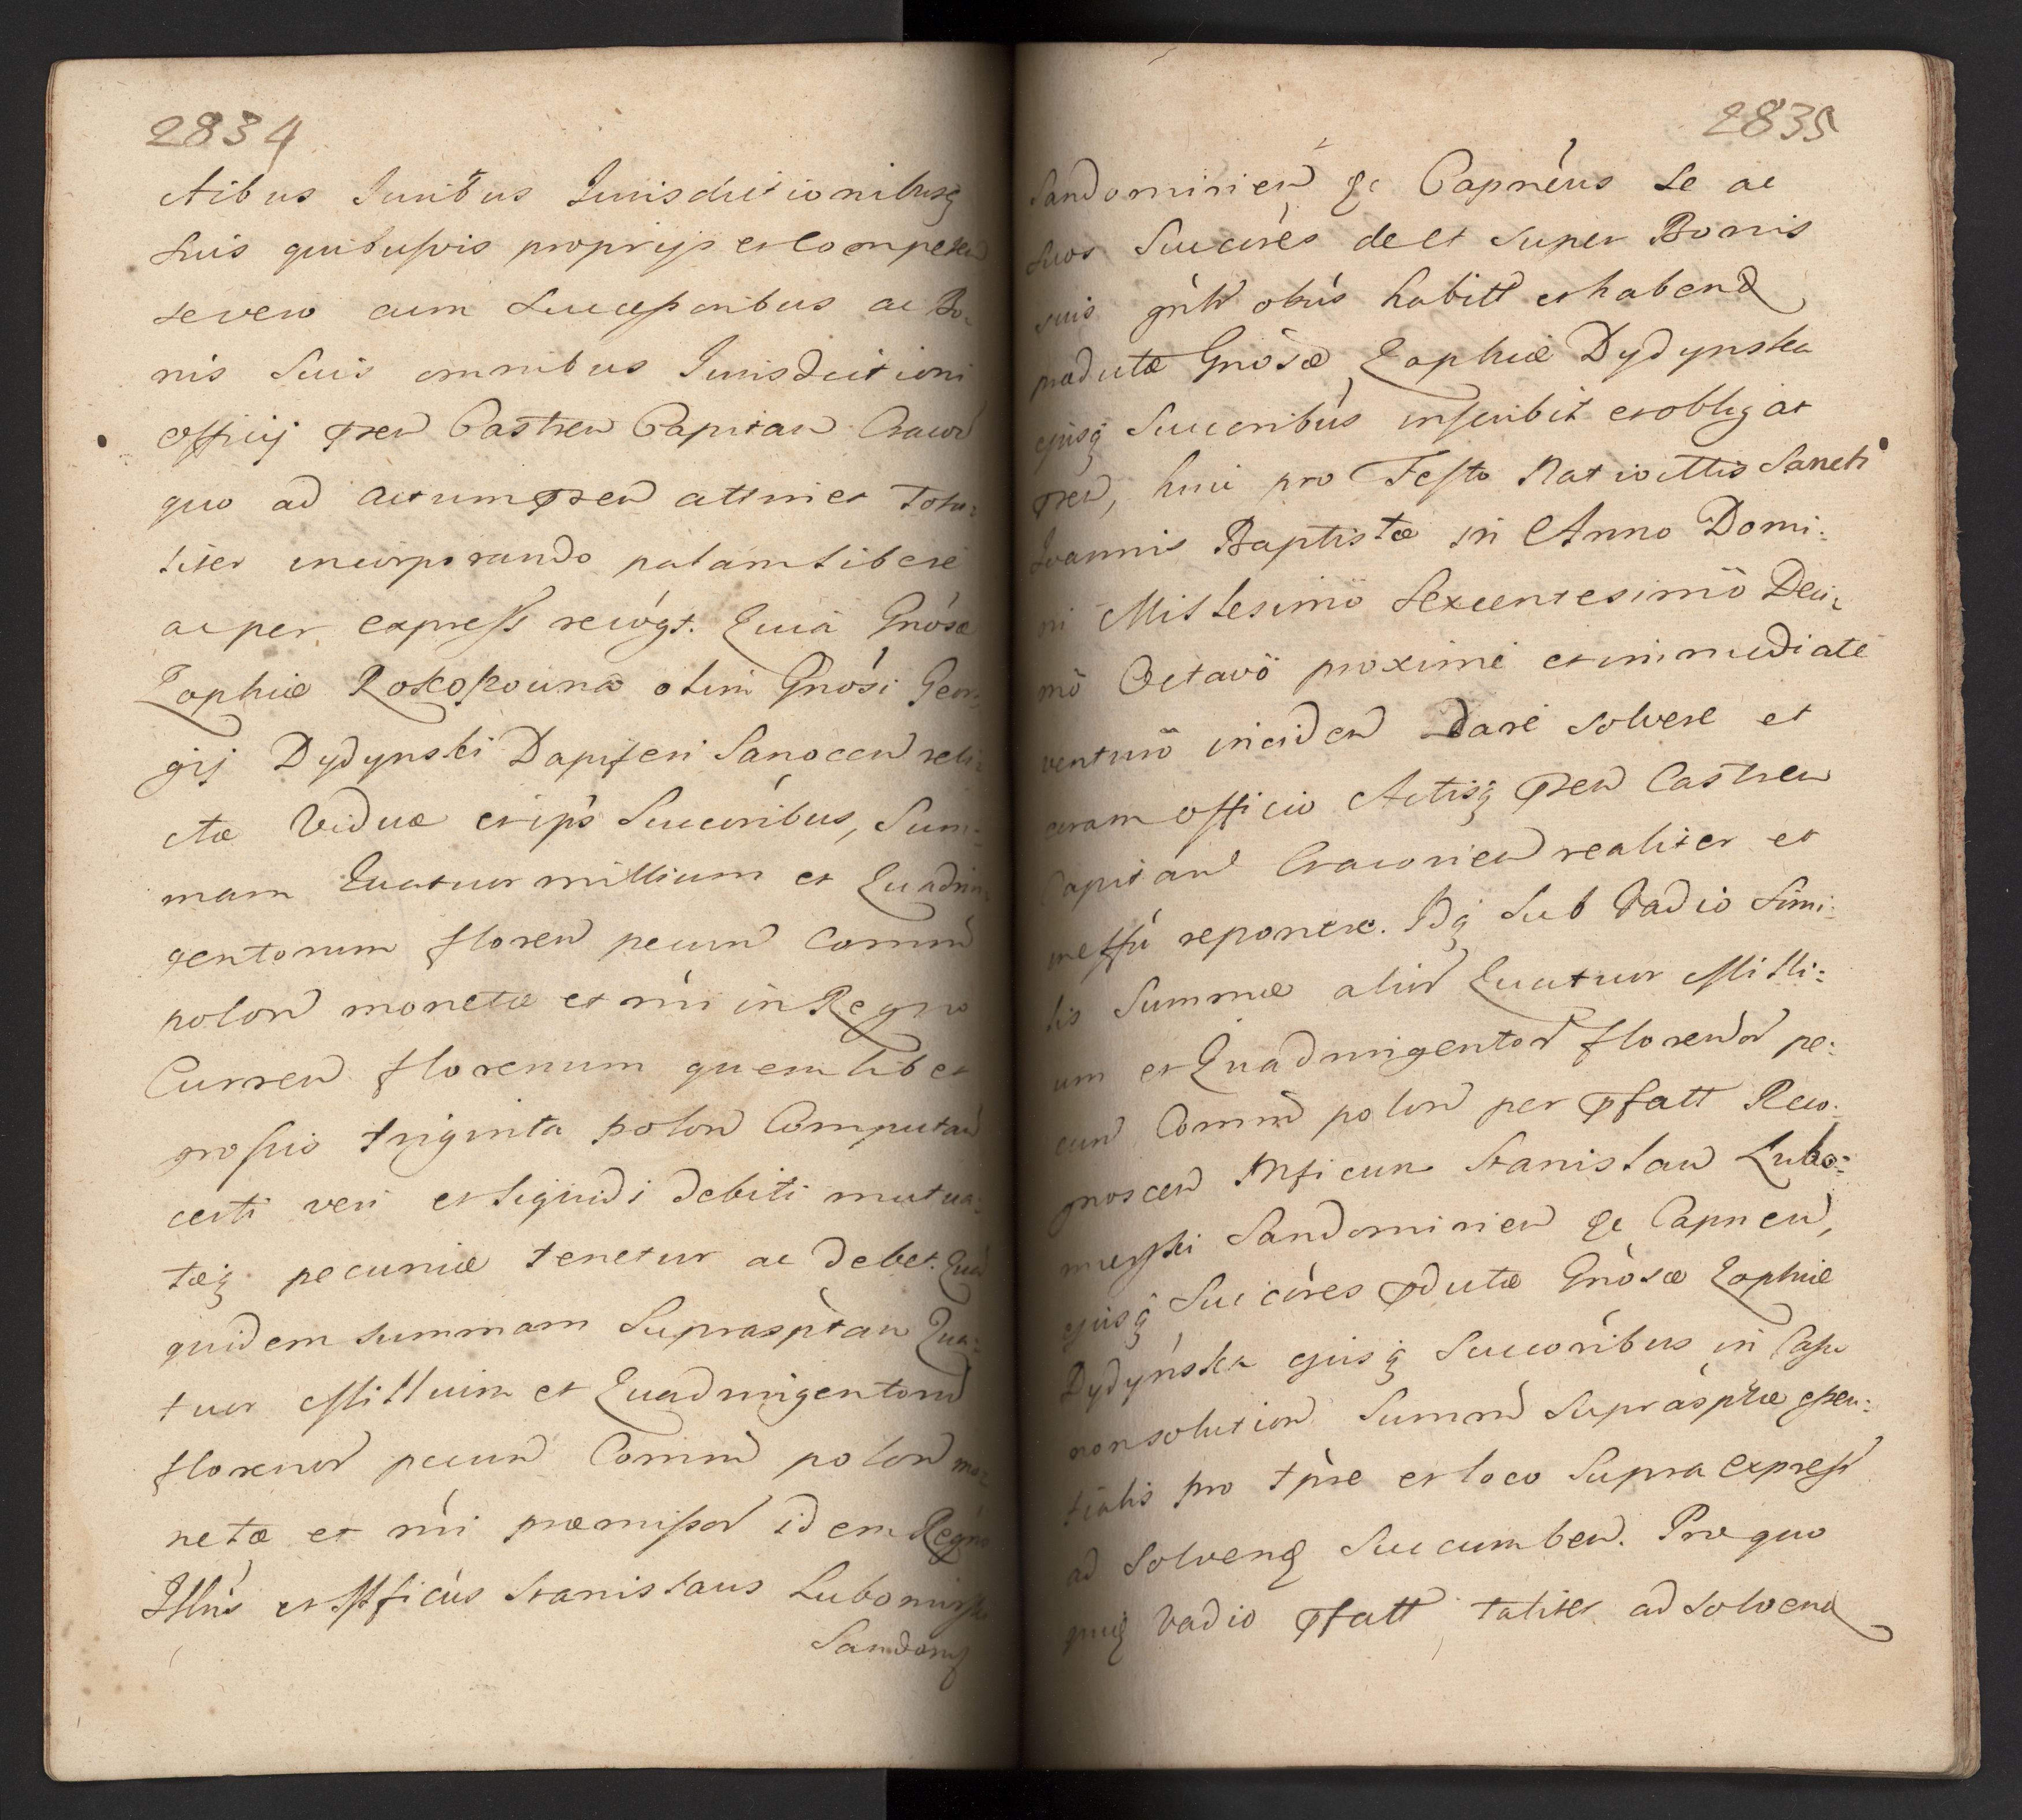 2834
ctibus Juribus Jurisdictionibusq
suis quibusvis proprijs et competen
se vero cum Successoribus ac Bo-
nis Suis omnibus Jurisdictioni
Officij pren Castren Capitan Cracov
quo ad actum pren attinet Tota-
liter incorporando palam libere
ac per express recogt. Quia Gnosæ
Zophiæ Rokoszouna olim Gnosi Geor-
gij Dydynski Dapiferi Sanocen reli-
ctæ Viduæ et ips Succoribus, Sum-
mam Quatuor millium et Quadrin
gentorum floren pecun Commu
polon monetæ et nri in Regno
Curren florenum quemlibet
grossis triginta polon Computan
certi veri et liquidi debiti mutua-
tæq pecuniæ tenetur ac debet. Qua
quidem summam Suprasptan Qua-
tuor Millium et Quadringentorum
florenor pecun Commu polon mo-
netæ et nri præmissor idem Regno
Illris et Mficus Stanislaus Lubomirski
Sandomi
2835
Sandomirien &c Capneus se ac
suos Succores de et super Bonis
suis gnlr obus habitt et habend
prædictæ Gnosæ Zophiæ Dydynska
ejusq Succoribus inscribit et obligat
pren, huic pro Festo Nativittis Sancti
Joannis Baptistæ in Anno Domi-
ni Millesimo Sexcentesimo Deci-
mo Octavo proxime et immediate
venturo inciden dare solvere et
coram officio Actisq pren Castren
Capitanl Cracovien realiter et
in effu reponere. Idq Sub Vadio Simi-
lis Summæ alior Quatuor Milli-
um et Quadringentor florenor pe-
cun Commu polon per pfatt Reco-
gnoscen Mficum Stanislaw Lubo-
mirski Sandomirien &c Capneu,
ejusq Succores pdictæ Gnosæ Zophiæ
Dydynska ejusq Succoribus in Casu
non solution Summæ Suprasptæ essen-
tialis pro tpre et loco Supra express
ad Solvend Succumben. Pro quo
quiq Vadio pfatt taliter ad solvend